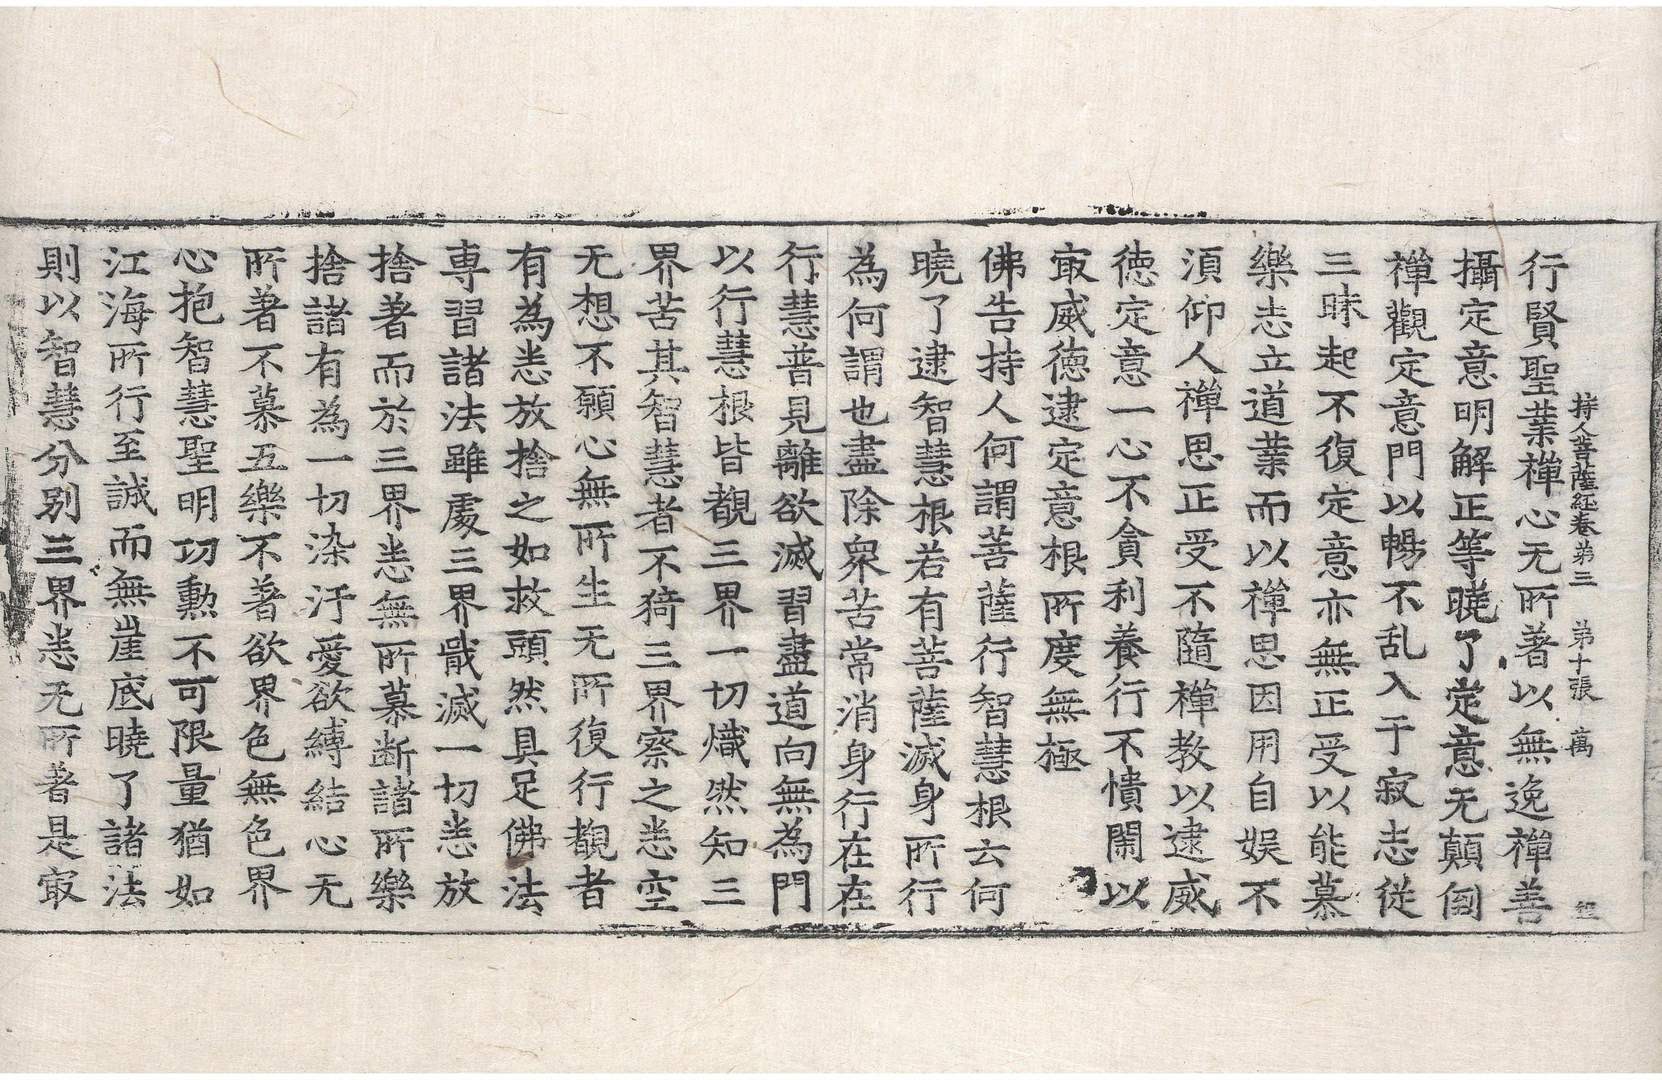 持人菩薩經卷第三 第十張 萬
行賢聖業禅心无所著以無逸禅善
攝定意明解正等曉了定意无顛倒
禅觀定意門以暢不乱入于寂志從
三昧起不復定意亦無正受以能慕
樂志立道業而以禅思因用自娱不
湏仰人禅思正受不隨禅教以逮威
徳定意一心不貪利養行不憒閙以
㝡威徳逮定意根所度無極
佛告持人何謂菩薩行智慧根云何
曉了逮智慧根若有菩薩滅身所行
為何謂也盡除衆苦常消身行在在
行慧普見離欲滅習盡道向無為門
以行慧根皆覩三界一切熾然知三
界苦其智慧者不猗三界察之悉空
无想不願心無所生无所復行覩者
有為悉放捨之如救頭然具足佛法
専習諸法雖處三界皆滅一切悉放
捨著而於三界悉無所慕断諸所樂
捨諸有為一切染汙愛欲縛結心无
所著不慕五樂不著欲界色無色界
心抱智慧聖明功勲不可限量猶如
江海所行至誠而無崖底曉了諸法
則以智慧分别三界悉无所著是㝡